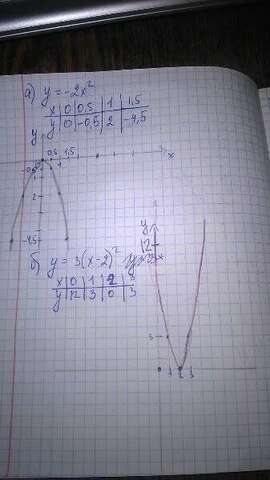 а) y = -2x²
x | 0 | 0,5 | 1 | 1,5
y | 0 | -0,5 | 2 | -4,5
y
0,5 1 1,5
x
2
-4,5
б) y = 3(x-2)²
x | 0 | 1 | 2 | 3
y | 12 | 3 | 0 | 3
y
12
3
1 2 3